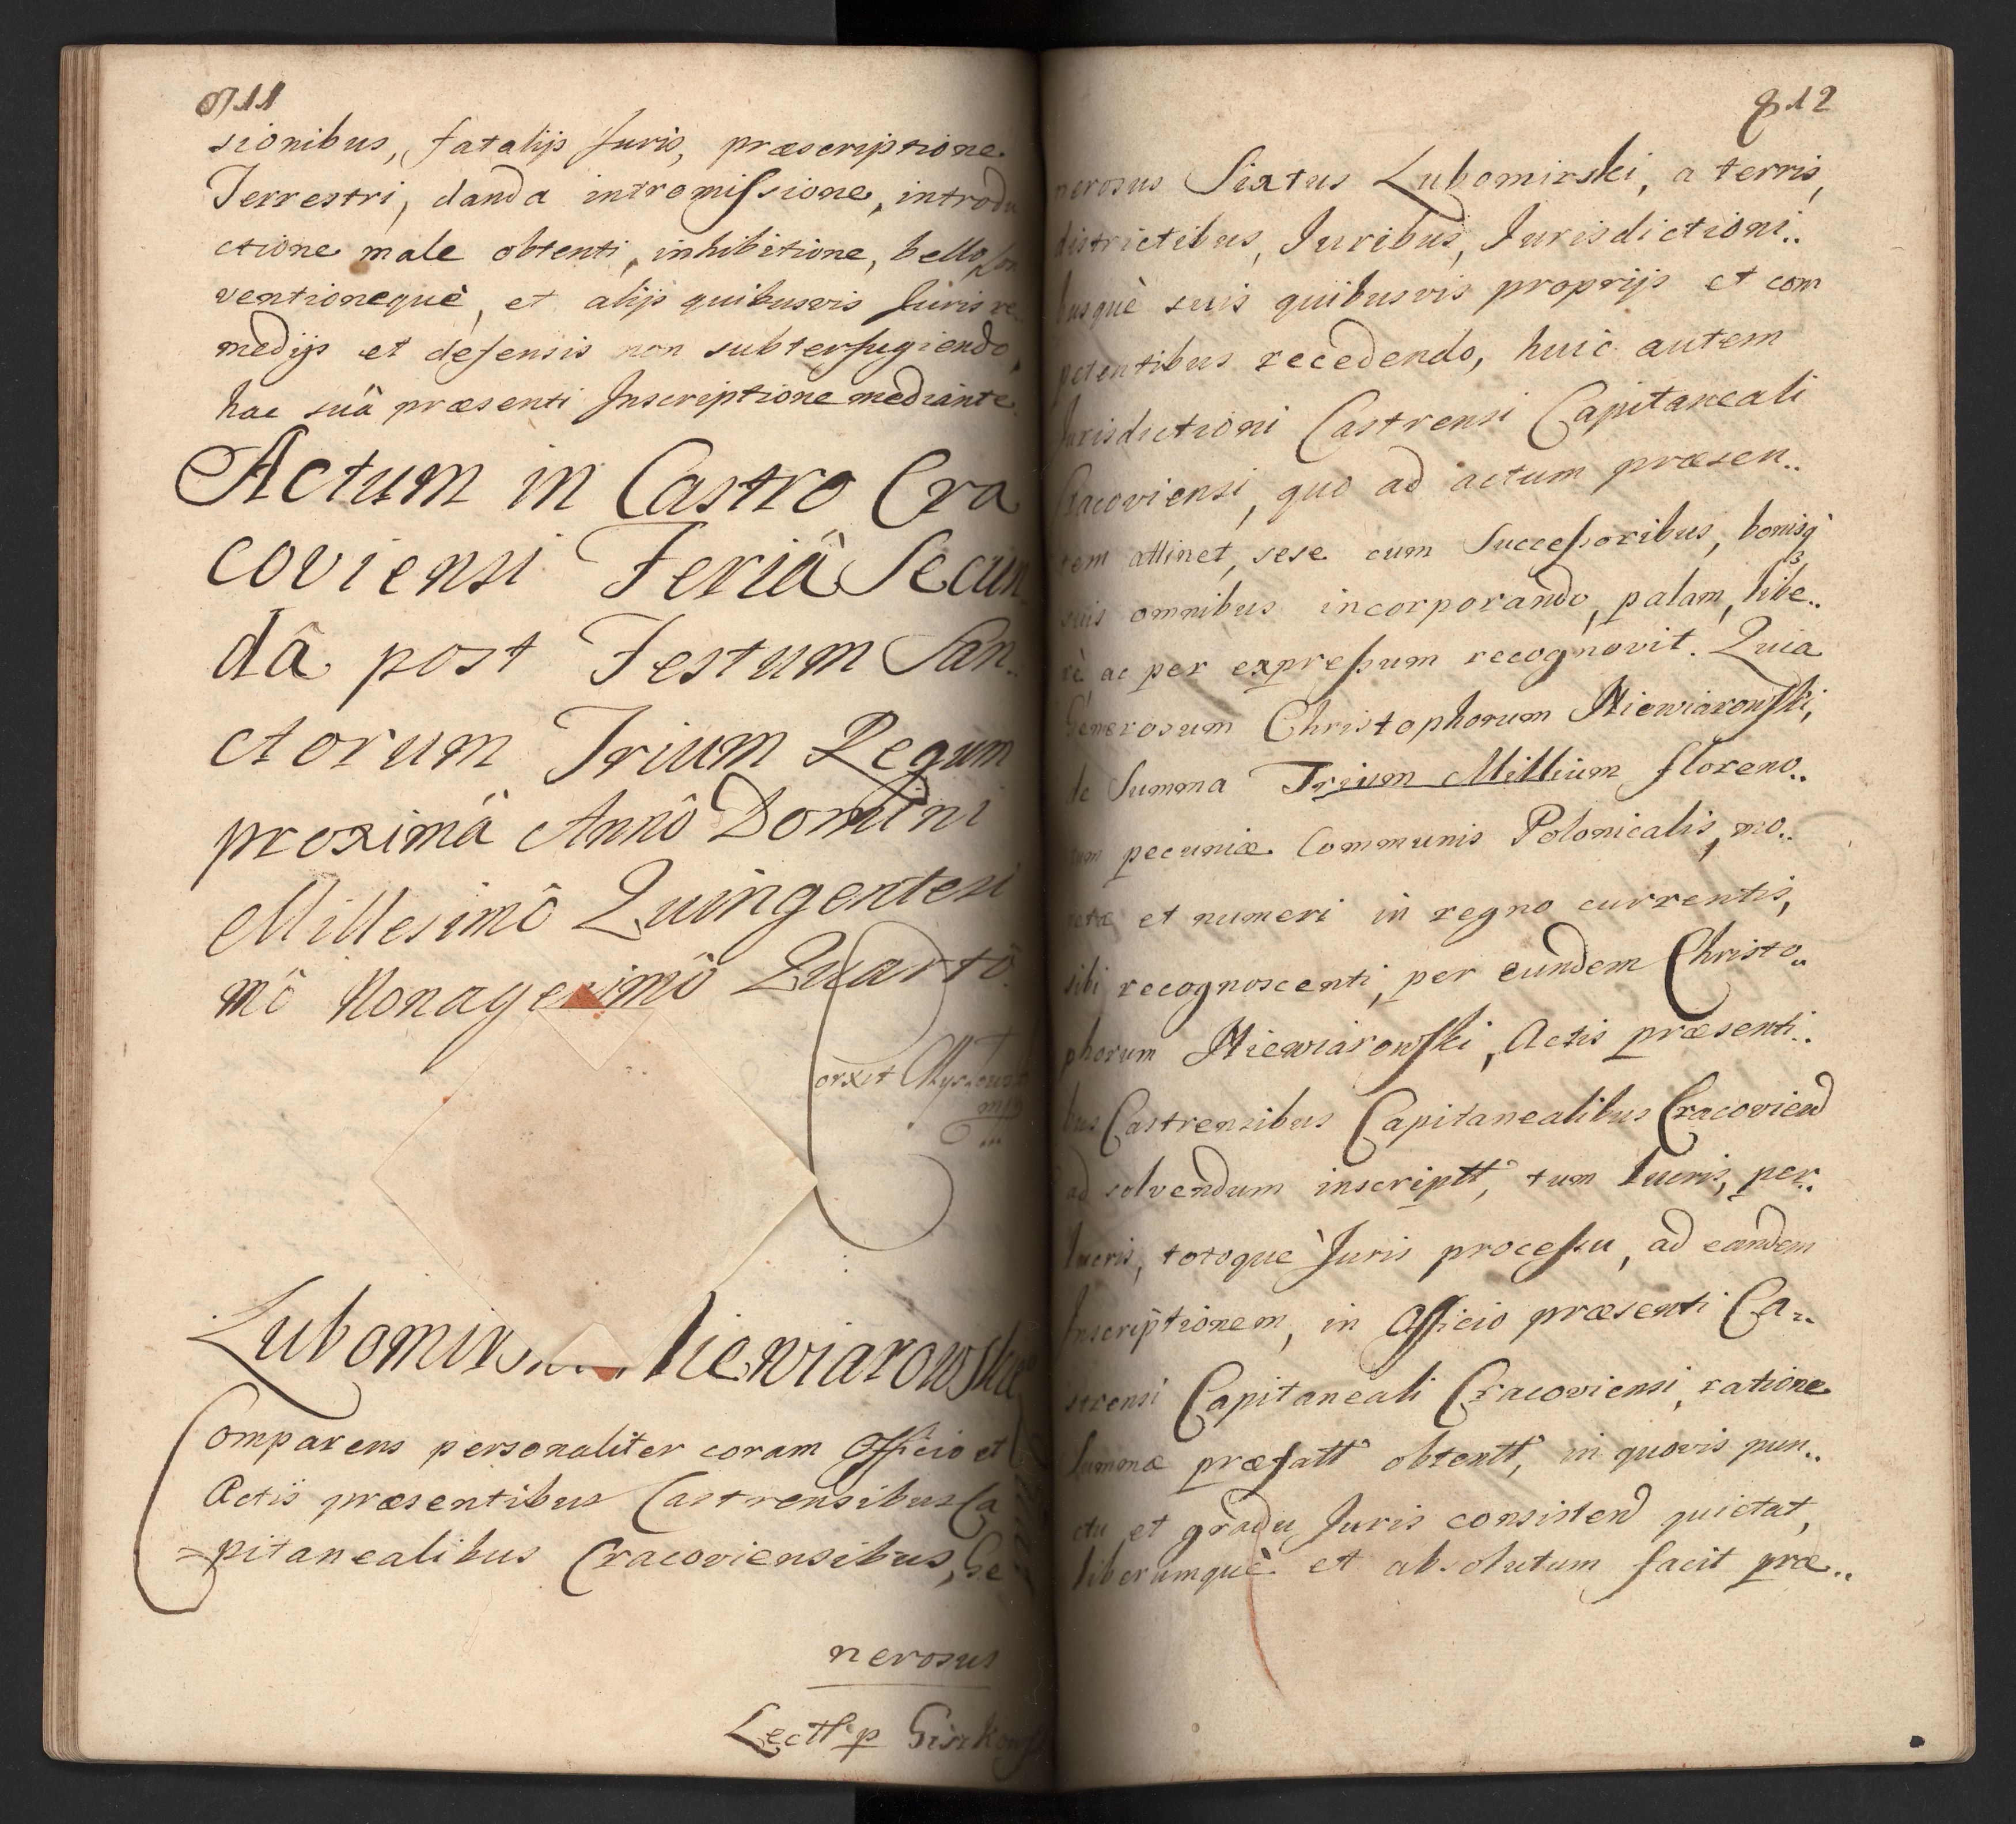 711
sionibus, fatalijs Juris, præscriptione
Terrestri, danda intromissione, introdu
ctione male obtenti, inhibitione, bello, con
ventionequè, et alijs quibusvis Juris re
medijs et defensis non subterfugiendo,
hac suâ præsenti Inscriptione mediante.
Actum in Castro Cra
coviensi Feriâ Secun
dâ post Festum San..
ctorum Trium Regum
proximâ Annô Domini
Millesimô Quingentesi
mô Nonagesimô Quartô.
Lubomirs Niewiarowski
Comparens personaliter coram Officio et
Actis præsentibus Castrensibus Ca
=pitanealibus Cracoviensibus, Ge
nerosus
Lectt p
812
nerosus Sixtus Lubomirski, a terris,
districtibus, Juribus, Jurisdictioni..
busquè suis quibusvis proprijs et com
petentibus recedendo, huic autem
Jurisdictioni Castrensi Capitaneali
Cracoviensi, quo ad actum præsen..
tem attinet, sese cum Successoribus, bonisq
suis omnibus incorporando, palam, libe..
rè ac per expressum recognovit. Quia
Generosum Christophorum Niewiarowski,
de Summa Trium Millium floreno..
rum pecuniæ Communis Polonicalis, mo..
netæ et numeri in regno currentis,
sibi recognoscenti, per eundem Christo..
phorum Niewiarowski, Actis præsenti..
bus Castrensibus Capitanealibus Cracoviend
ad solvendum inscriptt, tum lucris, per..
lucris, totoquè Juris processu, ad eandem
Inscriptionem, in Officio præsenti Ca..
strensi Capitaneali Cracoviensi, ratione
Summæ præfatt obtentt, in quovis pun..
ctu et gradu Juris consistend quietat,
liberumquè et absolutum facit præ..